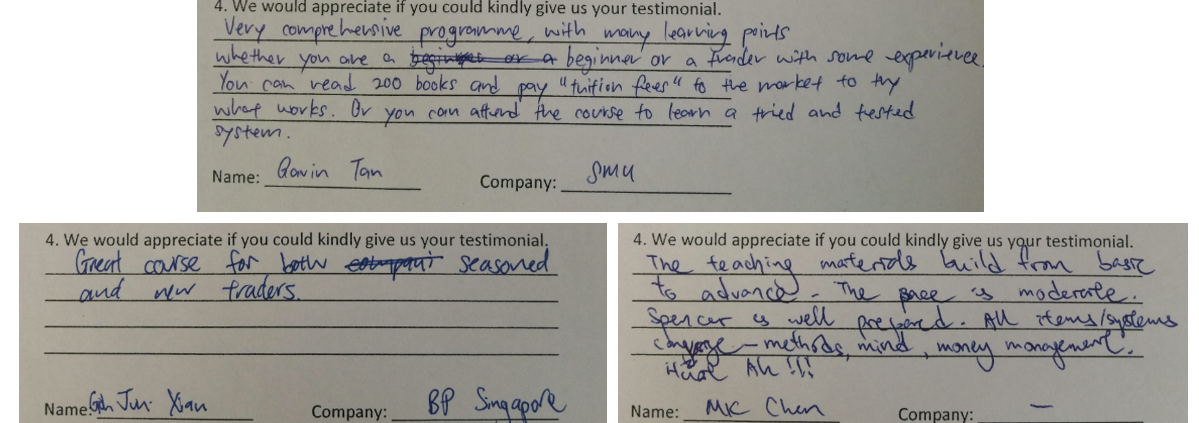 4. We would appreciate if you could kindly give us your testimonial.
Very comprehensive programme, with many learning points
whether you are a beginner or a trader with some experience.
You can read 200 books and pay "tuition fees" to the market to try
what works. Or you can attend the course to learn a tried and tested
system.
Name: Gavin Tan Company: SMU
4. We would appreciate if you could kindly give us your testimonial.
Great course for both seasoned
and new traders.
Name: Goh Jun Xian Company: BP Singapore
4. We would appreciate if you could kindly give us your testimonial.
The teaching materials build from basic
to advance. The pace is moderate.
Spencer is well prepared. All items/systems
converge – methods, mind, money management.
Ah!!!
Name: MK Chen Company: —